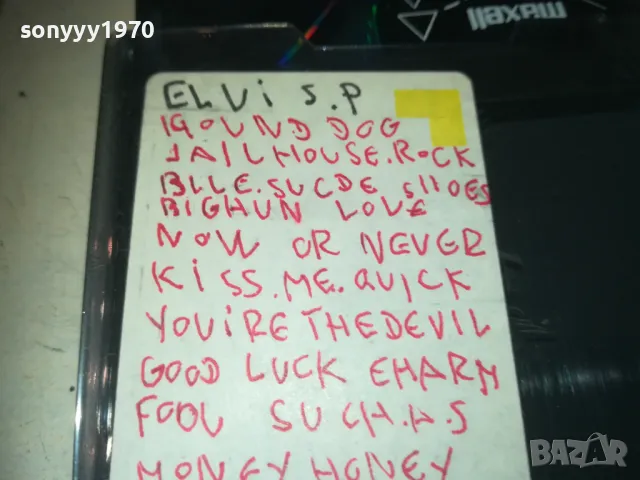 sonyyy1970
maxell
ELVi S.P
HOUND DOG
JAILHOUSE.ROCK
BLLE.SUCDE SHOES
BIGHUN LOVE
NOW OR NEVER
KiSS.ME.QUICK
YOUiRE THE DEVIL
GOOD LUCK EHARM
FOOL SUCH.A.S
MONEY HONEY
BAZAR